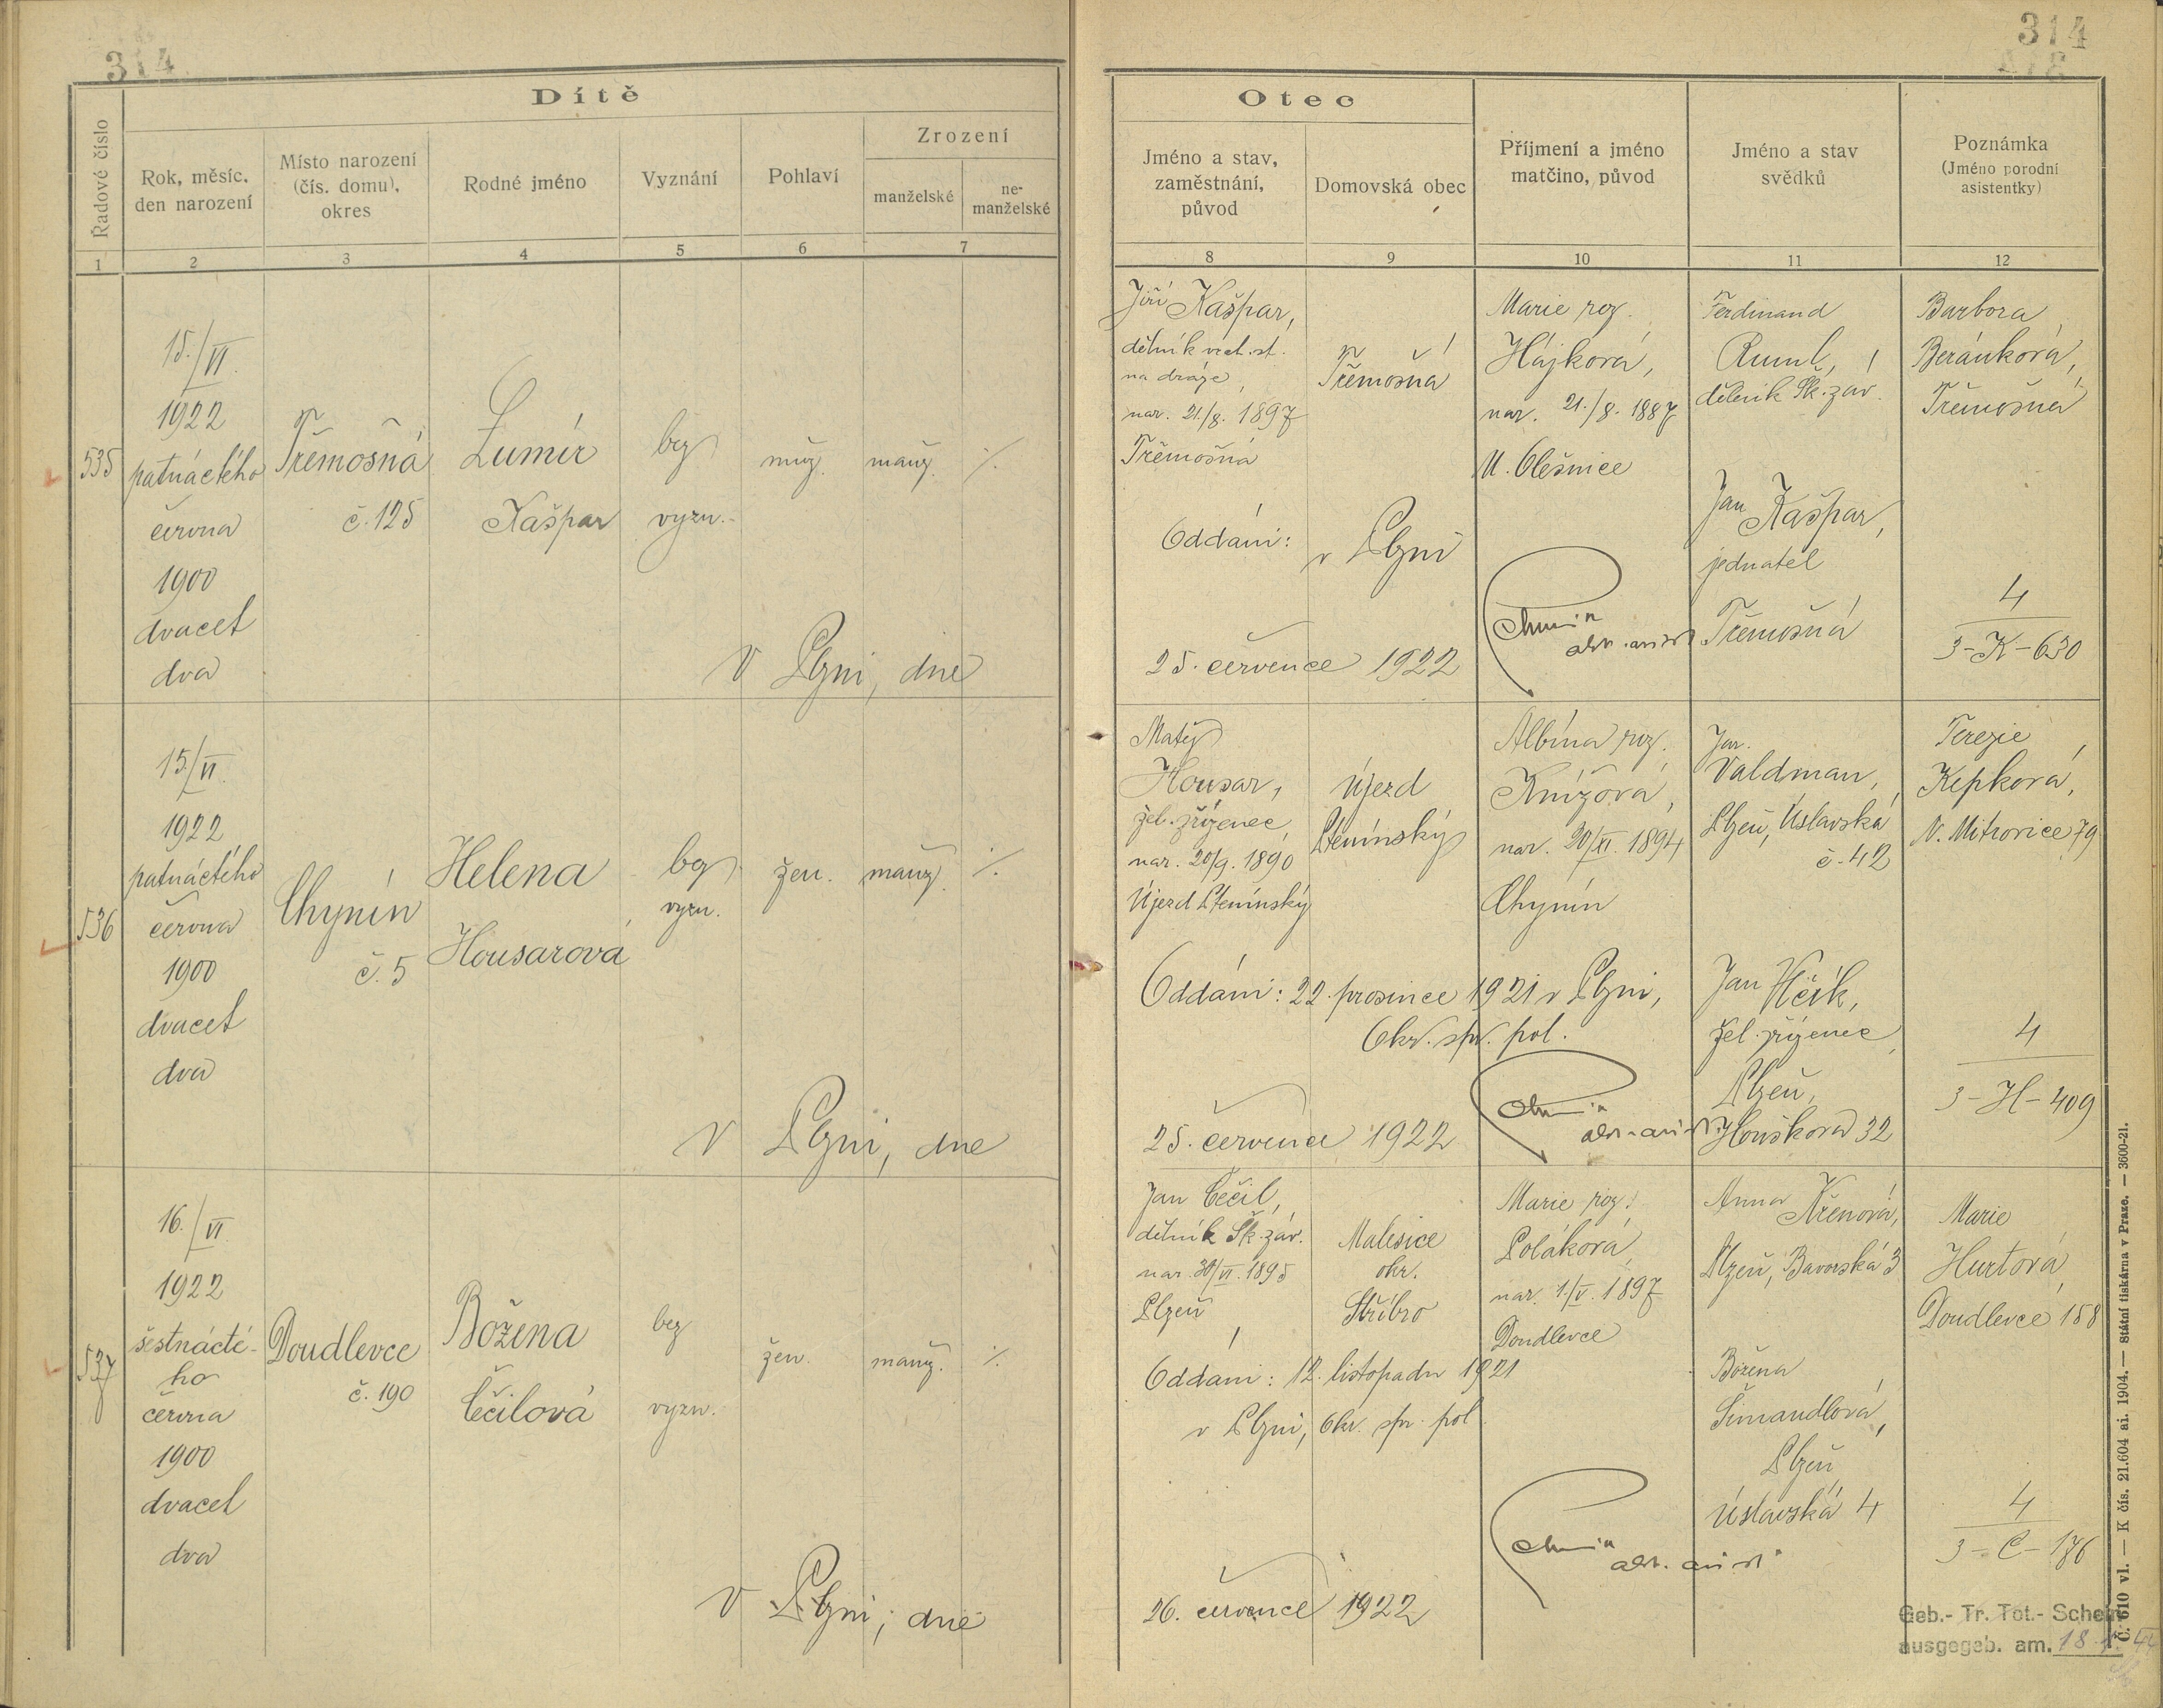 314
314
Dítě
Otec
Řadové číslo
Rok, měsíc,
den narození
Místo narození
(čís. domu),
okres
Rodné jméno
Vyznání
Pohlaví
Zrození
manželské
ne-
manželské
Jméno a stav,
zaměstnání,
původ
Domovská obec
Příjmení a jméno
matčino, původ
Jméno a stav
svědků
Poznámka
(Jméno porodní
asistentky)
1 2 3 4 5 6 7
8 9 10 11 12
535
15./VI.
1922
patnáctého
června
1900
dvacet
dva
Třemošná
č. 125
Lumír
Kašpar
bez
vyzn.
muž.
manž.
%
V Plzni, dne
Jiří Kašpar,
dělník
na dráze,
nar. 21./8. 1897
Třemošná
Třemošná
Marie roz.
Hájková,
nar. 21./8. 1887
Olešnice
Ferdinand
Ruml,
dělník Šk. záv.
Jan Kašpar,
jednatel
Třemošná
Barbora
Beránková,
Třemošná
Oddáni: v Plzni
25. července 1922
4
3-K-630
536
15./VI.
1922
patnáctého
června
1900
dvacet
dva
Chynín
č. 5
Helena
Housarová
bez
vyzn.
žen.
manž.
%
V Plzni, dne
Matěj
Housar,
žel. zřízenec,
nar. 20/9. 1890
Újezd Štěnínský
Újezd
Štěnínský
Albína roz.
Knížová,
nar. 30/XI. 1894
Chynín
Jar.
Valdman,
Plzeň, Úslavská
č. 42
Jan Vlčík,
žel. zřízenec,
Plzeň,
Houškova 32
Terezie
Kepková,
N. Mitrovice 79
Oddáni: 22. prosince 1921 v Plzni,
Okr. spr. pol.
25. července 1922
4
3-H-409
537
16./VI.
1922
šestnácté-
ho
června
1900
dvacet
dva
Doudlevce
č. 190
Božena
Čečilová
bez
vyzn.
žen.
manž.
%
V Plzni, dne
Jan Čečil,
dělník Šk. záv.
nar. 30/VI. 1895
Plzeň
Malesice
okr.
Stříbro
Marie roz.
Poláková,
nar. 1./V. 1897
Doudlevce
Anna Křenová,
Plzeň, Bavorská 3
Božena
Šimandlová,
Plzeň,
Úslavská 4
Marie
Hurtová,
Doudlevce 158
Oddáni: 12. listopadu 1921
v Plzni, Okr. spr. pol.
26. července 1922
4
3-C-176
Geb.- Tr. Tot.- Schein
ausgegeb. am.
Č. 610 vl. — K čís. 21.604 ai. 1904. — Státní tiskárna v Praze. — 3600-21.